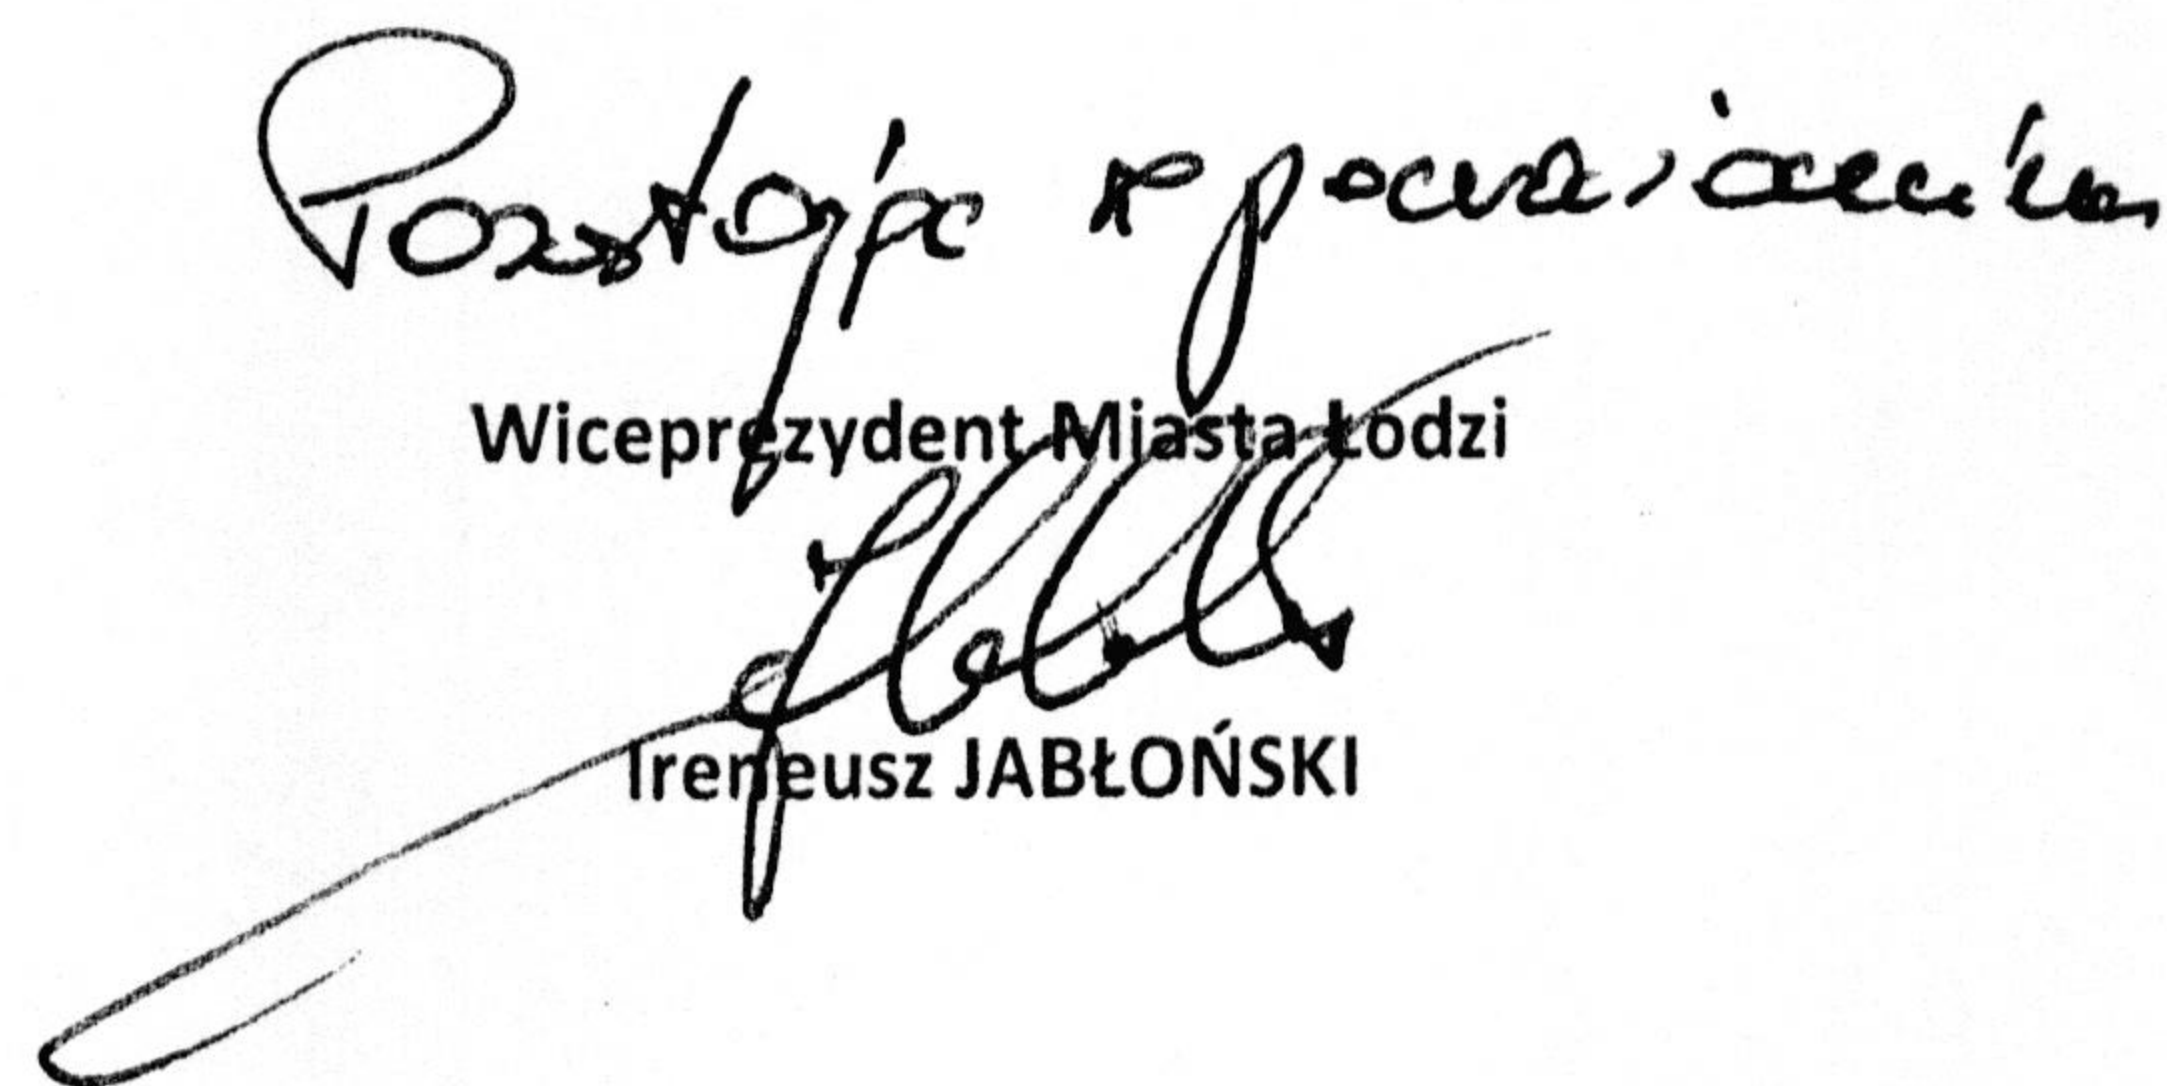 Pozostając z poważaniem
Wiceprezydent Miasta Łodzi
Ireneusz JABŁOŃSKI